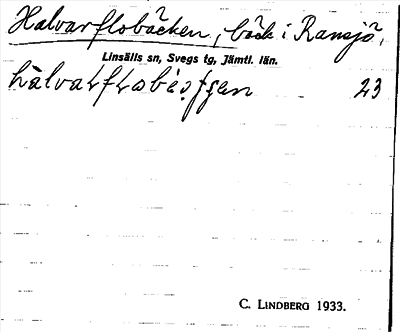 Halvarflobäcken, bäck i Ransjö,
Linsälls sn, Svegs tg, Jämtl. län.
23
C. LINDBERG 1933.